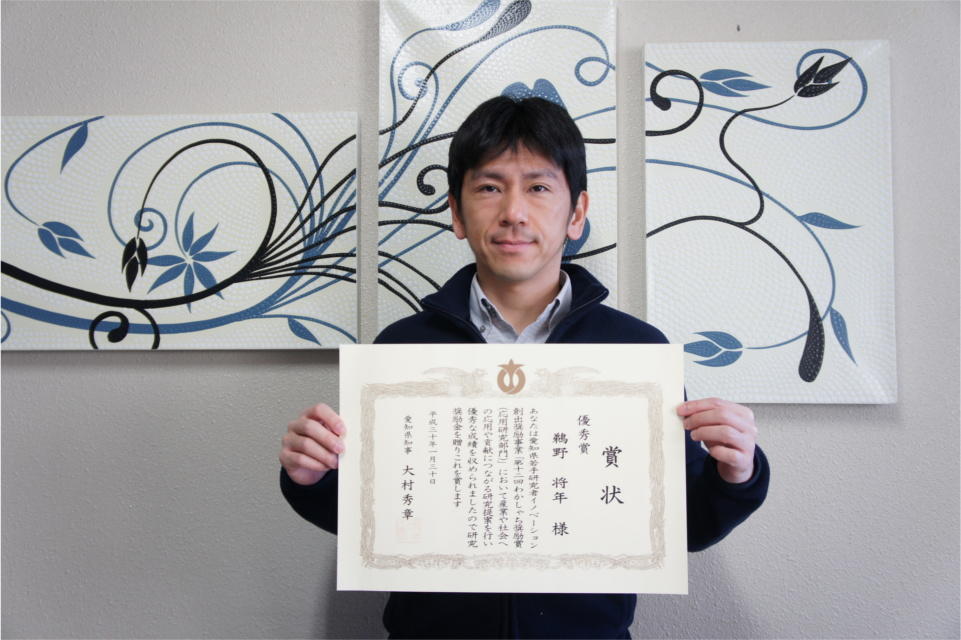 賞状
優秀賞
鵜野 将年 様
あなたは愛知県若手研究者イノベーション
創出奨励事業「第十二回わかしゃち奨励賞
(応用研究部門)」において産業や社会へ
の応用や貢献につながる研究提案を行い
優秀な成績を収められましたので研究
奨励金を贈りこれを賞します
平成三十年一月三十日
愛知県知事 大村秀章